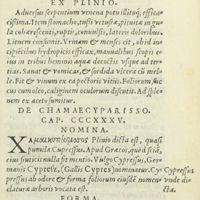 EX PLINIO.
Aduersus serpentium venena potu illitúq; efficacissima. Item stomacho, tussi vetustæ, pituita in gula cohærescenti, ruptis, conuulsis, lateris doloribus.
Lienem consumit. Vrinam & menses ciet, ob id incipientibus hydropicis efficax, manualibus scopis eius in tribus heminis aquæ decoctis vsque ad tertias. Sanat & vomicas, & sordida vlcera ex melle. Fit & vinum ex ea partu vitis. Foliorum, succus cum oleo, caliginem oculorum discutit. Ad splenem ex aceto sumitur.
DE CHAMAECYPARISSO.
CAP. CCCXXXV.
NOMINA.
Χαμαικυπάρισσος Plinio dicta est, quasi
pumila Cupressus. Apud Græcos, quod sciā,
eius fruticis nulla fit mentio. Vulgo Cypressus, Germanis Cypreß, (Gallis Cypres) nominatur. Cy Cypressus
pressus ab odore & forma foliorum eiusdē nomen vnde di
clatura arboris vocata est. cta.
FORMA.